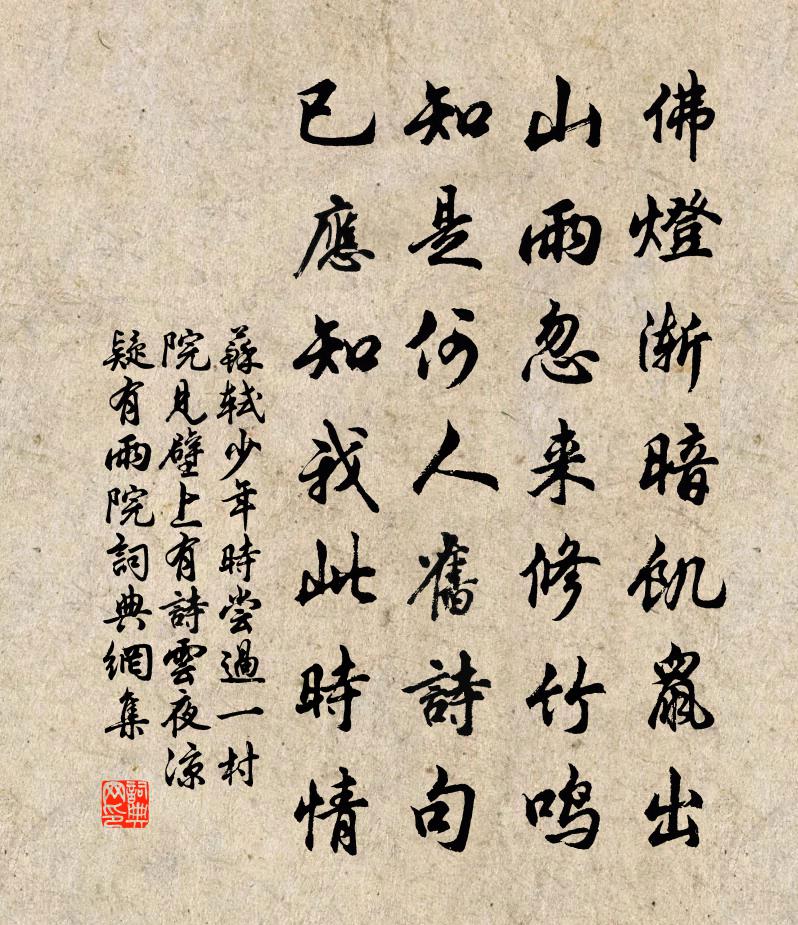 佛燈漸暗飢鼠出
山雨忽来修竹鸣
知是何人舊詩句
已應知我此時情
蘇軾少年時尝過一村
院見壁上有詩雲夜凉
疑有雨院詞典網集
詞典
网印